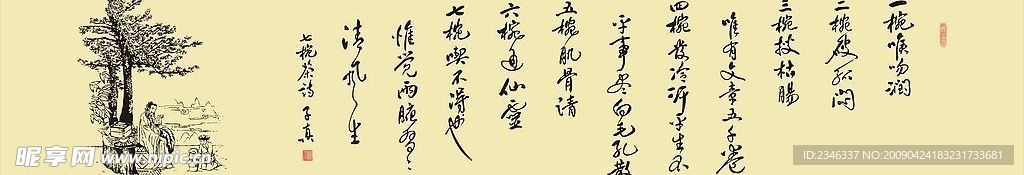 一椀喉吻润
二椀破孤闷
三椀搜枯腸
唯有文章五千卷
四椀发冷汗平生不
平事尽向毛孔散
五椀肌骨清
六椀通仙靈
七椀喫不得也
惟觉两腋習習
清風生
七椀茶诗
昵享网 www.nipic.cn
ID:2346337 NO:20090424183231733681